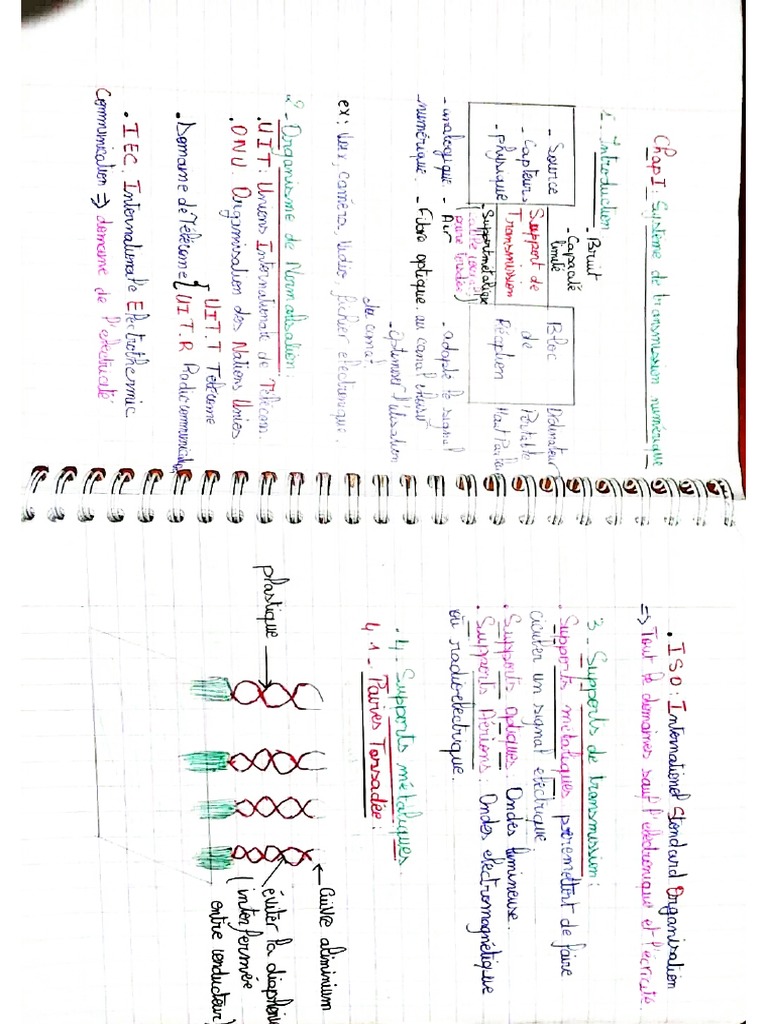 Chap I: Système de transmission numérique
1 - Introduction
- Bruit
- Capacité
limité
- Source
- Capteurs
- physique
Support de
Transmission
- Support metalique
Bloc
de
Réception
Ordinateur
Portable
- analogique
- numérique.
- Air
- Fibre optique.
- adapté le signal
au canal
- Optimiser l'utilisation
du canal
ex: caméra, fichier electronique.
2 - Organisme de Normalisation:
. UIT: Unions Internationale de Télécom.
. ONU. Organisation des Nations Unies
. Domaine de Télécom { UIT.T Télécome
UIT.R Radio communication
. IEC. International Electrothermic
Communication => domaine de l'electricité
. ISO: Internationel Standard Organisation
=> Tout le domaines sauf l'electronique et
3 - Supports de transmission:
. Supports métaliques permettent de faire
circuler un signal electrique
. Supports Optiques: Ondes lumineuse.
. Supports Aériens: Ondes electromagnétique
ou radioelectrique.
. 4 - Supports métaliques
4.1 - Paires Torsadée:
plastique
Cuivre aliminium
éviter la
(interfermée
entre conducteur)